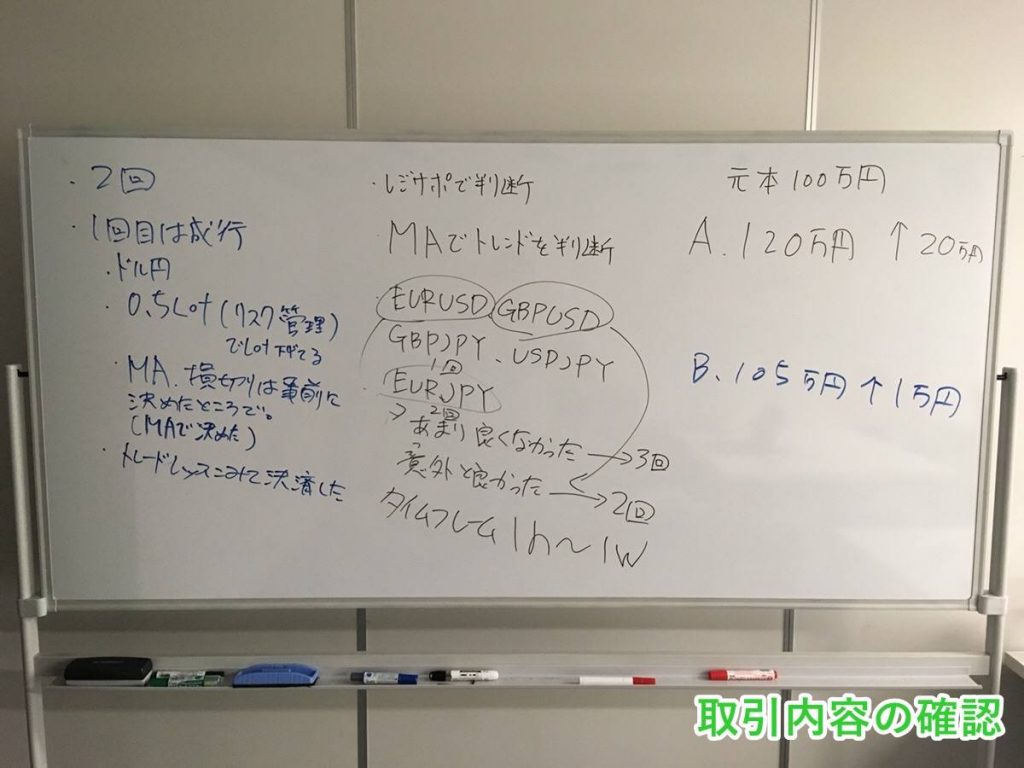 ・2回
・1回目は成行
・ドル円
・0.5Lot(リスク管理)
でLot下げてる
・MA、損切りは事前に
決めたところで。
(MAで決めた)
・トレードレッスンみて決済した
・レジサポで判断
MAでトレンドを判断
・EURUSD GBPUSD
GBPJPY、USPJPY
1回
・EURJPY
2回
> あまり良くなかった → 3回
意外と良かった → 2回
タイムフレーム 1h〜1W
元本100万円
A.120万円 ↑20万円
B.105万円↑1万円
取引内容の確認